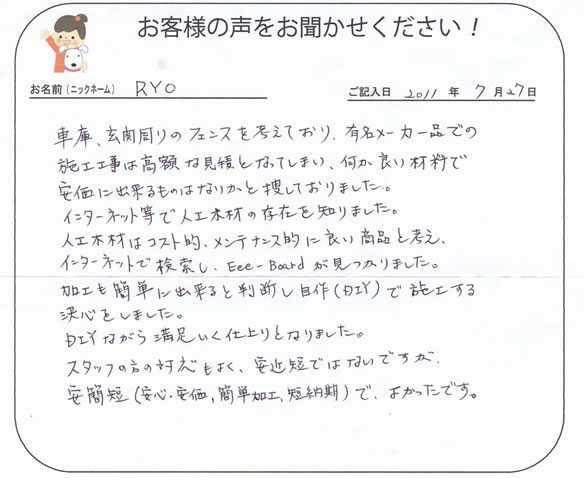 お客様の声をお聞かせください！
お名前（ニックネーム） RYO ご記入日 2011 年 7 月 27 日
車庫、玄関周りのフェンスを考えており、有名メーカー品での
施工工事は高額な見積となってしまい、何か良い材料で
安価に出来るものはないかと捜しておりました。
インターネット等で人工木材の存在を知りました。
人工木材はコスト的、メンテナンス的に良い商品と考え、
インターネットで検索し、Eee-Boardが見つかりました。
加工も簡単に出来ると判断し自作（DIY）で施工する
決心をしました。
DIYながら満足いく仕上りとなりました。
スタッフの方の対応もよく、安近短ではないですが、
安簡短（安心・安価,簡単加工,短納期）で、よかったです。